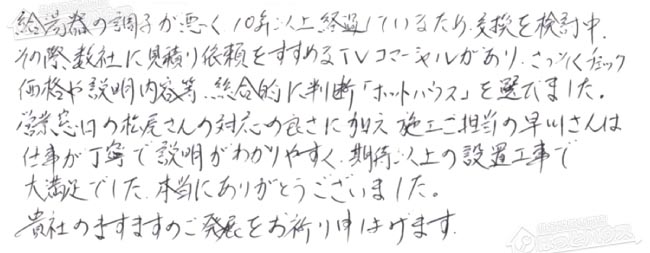 給湯器の調子が悪く10年以上経過しているため、交換を検討中、
その際、数社に見積り依頼をすすめるTVコマーシャルがあり、さっそくチェック
価格や説明内容等、総合的に判断「ホットハウス」を選びました。
営業窓口の松尾さんの対応の良さに加え施工ご担当の早川さんは
仕事が丁寧で説明がわかりやすく、期待以上の設置工事で
大満足でした。本当にありがとうございました。
貴社のますますのご発展をお祈り申し上げます。